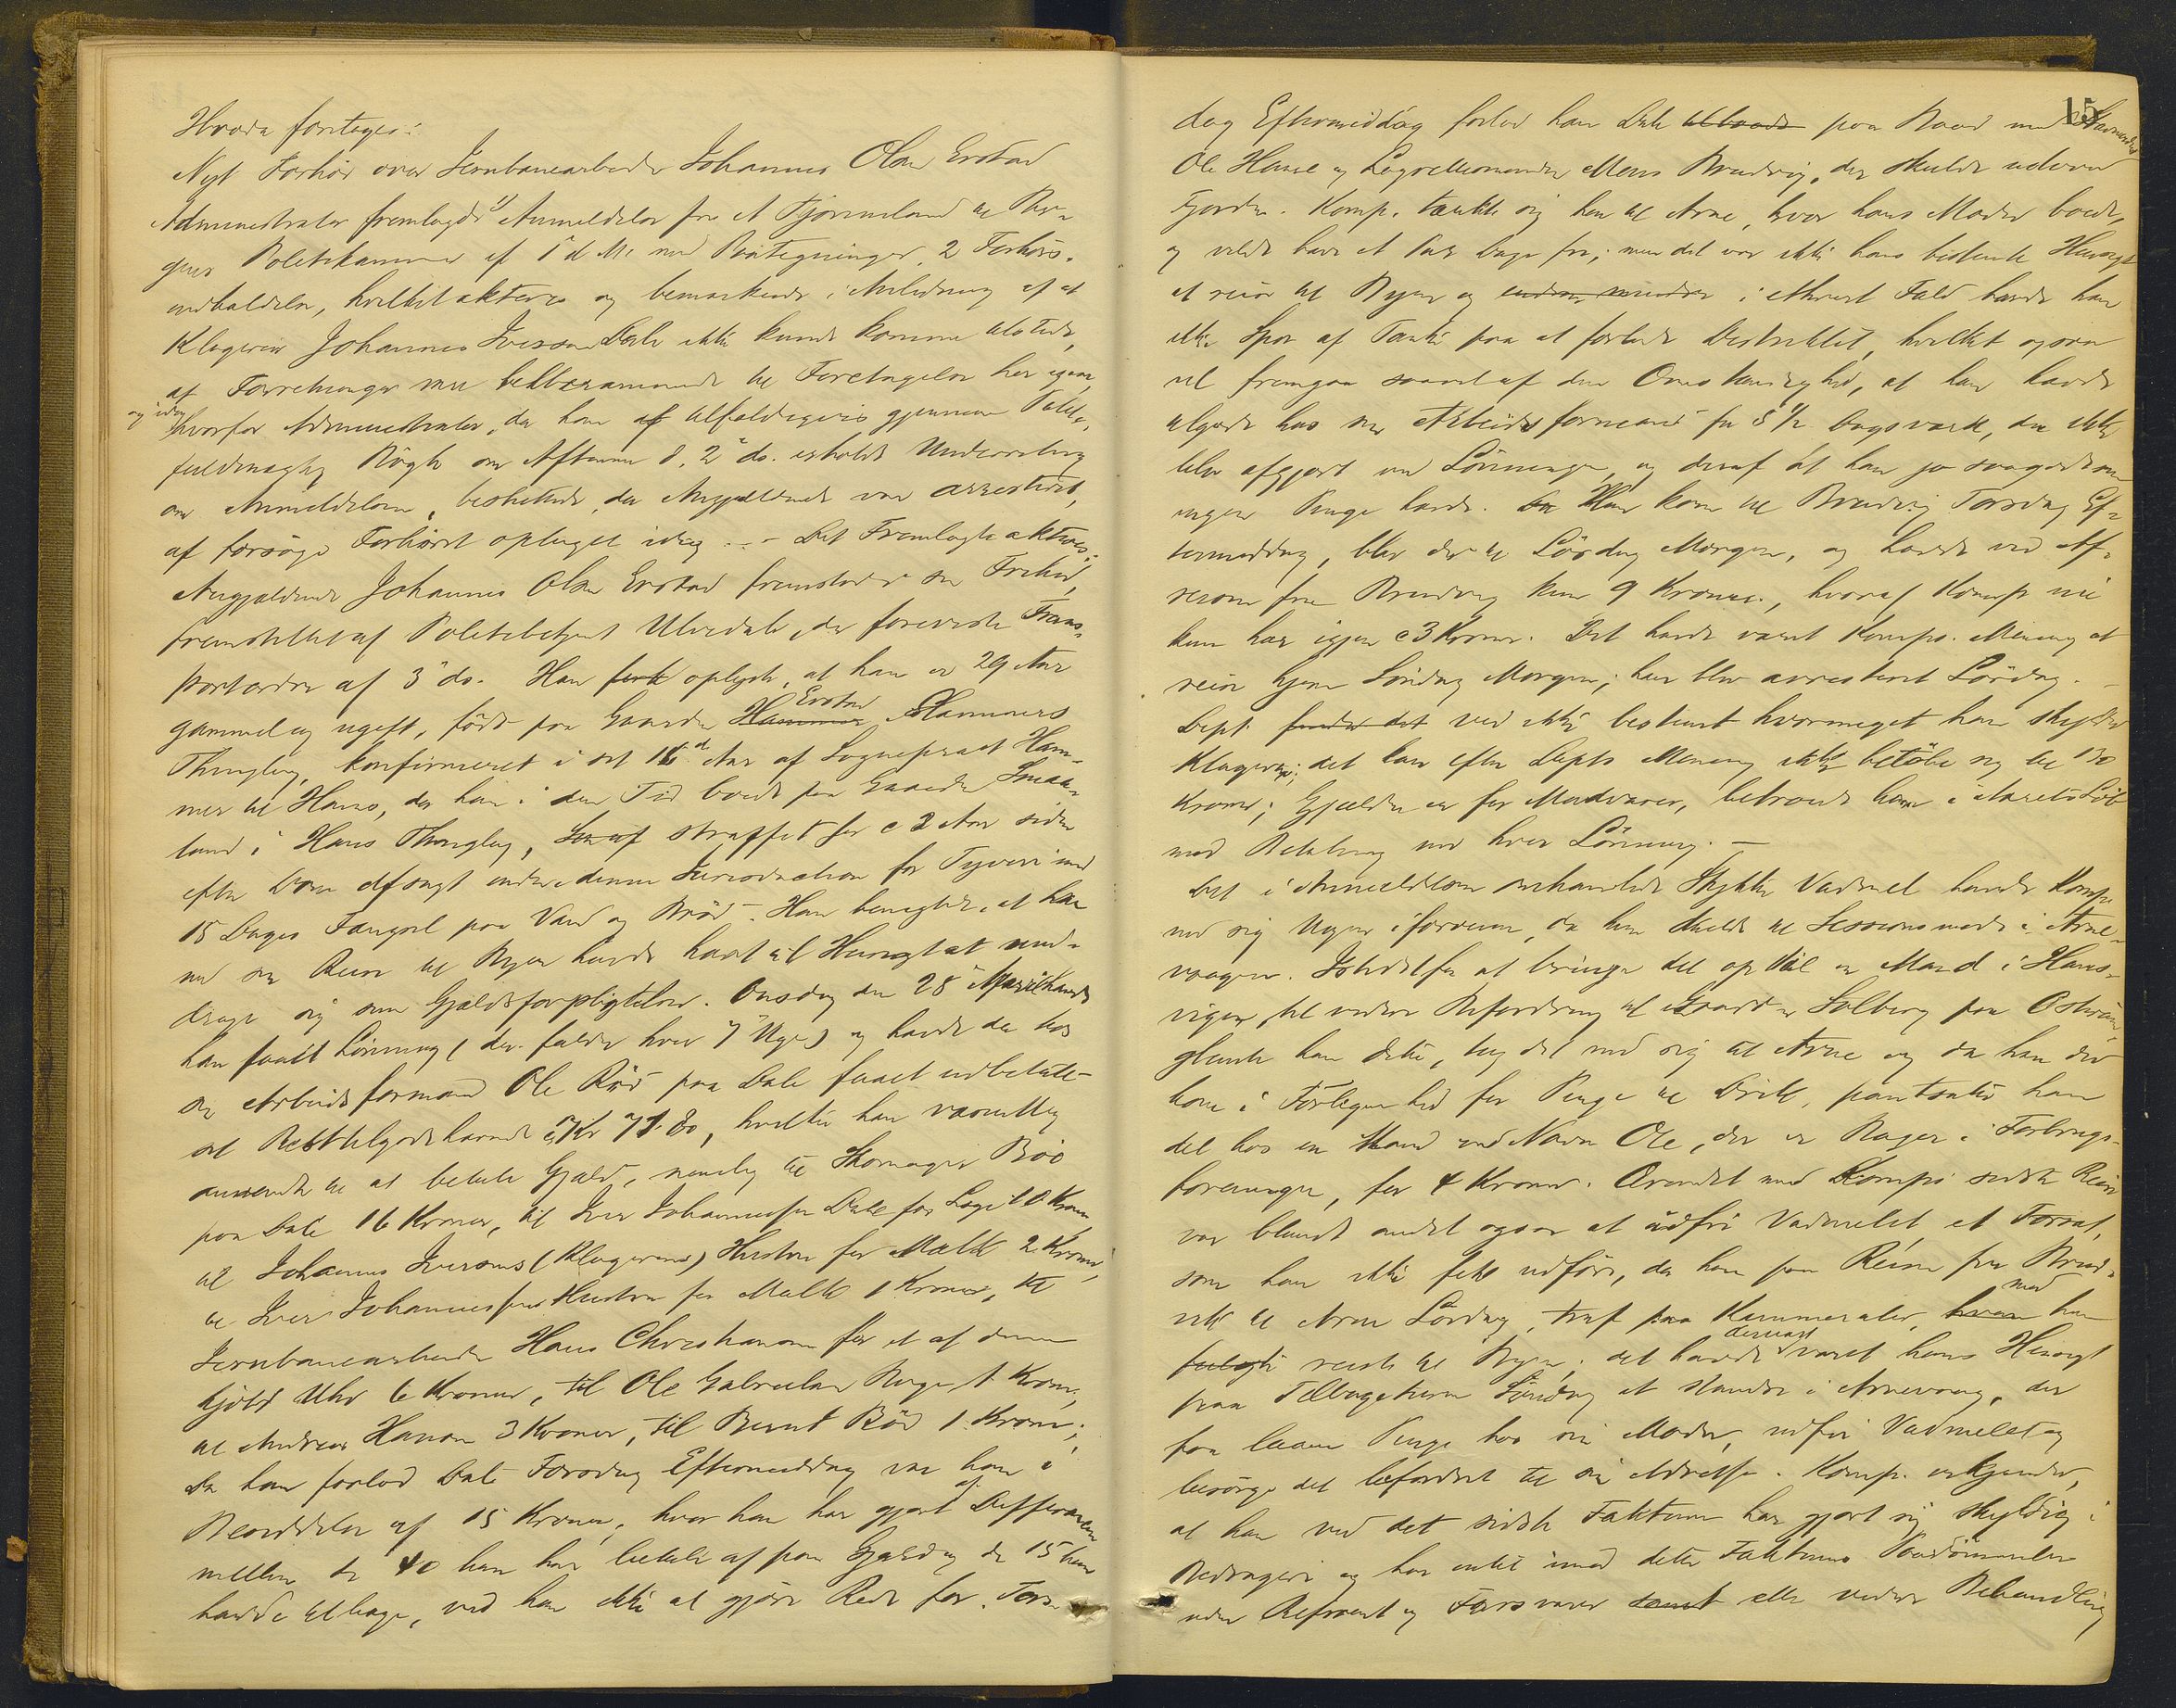 Hvorda foretoges:
Nyt Forhør over Jernbanearbeider Johannes Olsen Erstad
Administrator fremlagde 1) Anmeldelse fra A Tjørneland til Ber-
gens Politikammer af 1ste d. Ms. med Paategninger, 2 Forhørs-
indkaldelse, hvilket akteres og bemærkede i Anledning af at
Klageren Johannes Iversen Dale ikke kunde komme tilstede,
at Forretningen var bekkeramt til Foretagelse her igaar,
og idag
hvorfor Administrator, da han af tilfældigvis gjennem Politi-
fuldmægtig Røgh om Aftenen d. 2 ds. erholdt Underretning
om Anmeldelsen, besluttede, da Angjældende var arresteret,
at forsøge Forhøret optaget idag. — Det Fremlagte akteres:
Angjældende Johannes Olsen Erstad fremstod i sin Frihed,
fremstillet af Politibetjent Ulvedal, der foreviste Trans-
portordre af 3 ds. Han fork oplyste, at han er 29 Aar
gammel og ugift, født paa Gaarden Hammer Erstad Hammers
Thinglag, konfirmeret i sit 16de Aar af Sogneprest Ham-
mer til Haus, da han i den Tid boede paa Gaarden Smaa-
land i Haus Thinglag, straffet for c 2 Aar siden
efter Dom afsagt under denne Jurisdiktion for Tyveri med
15 Dages Fængsel paa Vand og Brød. Han benegtede, at han
med sin Reise til Byen havde havt til Hensigt at und-
drage sig sine Gjældsforpligtelser. Onsdag den 28 April havde
han faaet Lønning (der falder hver 4 Uge) og havde da hos
sin Arbeidsformand Ole Rød paa Dale faaet udbetalt
sit Resttilgodehavende Kr 71.80, hvilke han væsentlig
anvendte til at betale Gjæld, nemlig til Skomager Bøe
paa Dale 16 Kroner, til Iver Johannessen Dale for Logi 10 Kroner,
til Johannes Iversens (Klagerens) Hustru for Melk 2 Kroner,
til Iver Johannessens Hustru for Melk 1 Krone, til
Jernbanearbeider Hans Christiansen for et af denne
kjøbt Uhr 6 Kroner, til Ole Gabrielsen Bager 1 Krone,
til Andreas Hansen 3 Kroner, til Bernt Rød 1 Krone;
Da han forlod Dale Torsdag Eftermiddag var han i
Besiddelse af 15 Kroner, hvor han har gjort af Differancen
mellem de 40 han har betalt af paa Gjæld og de 15 han
havde tilbage, ved han ikke at gjøre Rede for. Tors-
15
dag Eftermiddag forlod han Dale tilbaads paa Baad med
Ole Hansel og Lagrettesmanden Mons Brudvig, der skulde udover
Fjorden. Komp. tænkte sig hen til Arne, hvor hans Moder boede,
og vilde have et Par Dage fri; men det var ikke hans bestemte Hensigt
at reise til Byen og endnu mindre i ethvert Fald havde han
ikke Spor af Tanke paa at forlade Distriktet, hvilket ogsaa
vil fremgaa saavel af den Omstændighed, at han havde
tilgode hos sin Arbeidsformand for 8 1/2 Dagsværk, der ikke
blev afgjort ved Lønningen, og deraf at han jo saagodtsom
ingen Penge havde. Da Han kom til Brudvig Torsdag Ef-
termiddag, blev der til Lørdag Morgen, og havde ved Af-
reisen fra Brudvig kun 9 Kroner, hvoraf Komp nu
kun har igjen c 3 Kroner. Det havde været Komps. Mening at
reise hjem Søndag Morgen; han blev arresteret Lørdag. —
Dept. ved ikke bestemt hvormeget han skylder
Klageren; det kan efter Depts Mening ikke beløbe sig til 130
Kroner; Gjælden er for Madvarer, betroede ham i Aarets Løb
mod Betaling ved hver Lønning. —
Det i Anmeldelsen omhandlede Stykke Vadmel havde Komp.
med sig Ugen iforveien, da han skulde til Sessionsmøde i Arne-
vaagen. Istedetfor at bringe det op til en Mand i Haus-
vigen, til videre Befordring til Solberg paa Osterøen,
glemte han dette, tog det med sig til Arne og da han der
kom i Forlegenhed for Penge til Drik, pantsatte han
det hos en Mand ved Navn Ole, der er Bager i Forbrugs-
foreningen, for 4 Kroner. Ærendet med Komps sidste Reise
var blandt andet ogsaa at udfri Vadmelet, et Forsæt,
som han ikke fik udført, da han paa Reisen fra Brud-
vik til Arne Lørdag, traf paa Kammerater, hvem med han
fulgte reiste til Byen; det havde derimod været hans Hensigt
paa Tilbageturen Søndag at standse i Arnevaag, der
faa laane Penge hos sin Moder, udfri Vadmelet og
besørge det befordret til sin Adresse. Komp. erkjender,
at han ved det sidste Faktum har gjort sig skyldig i
Bedrageri og har intet imod dette Faktums Paadømmelse
uden Aktorat og Forsvarer samt eller videre Behandling